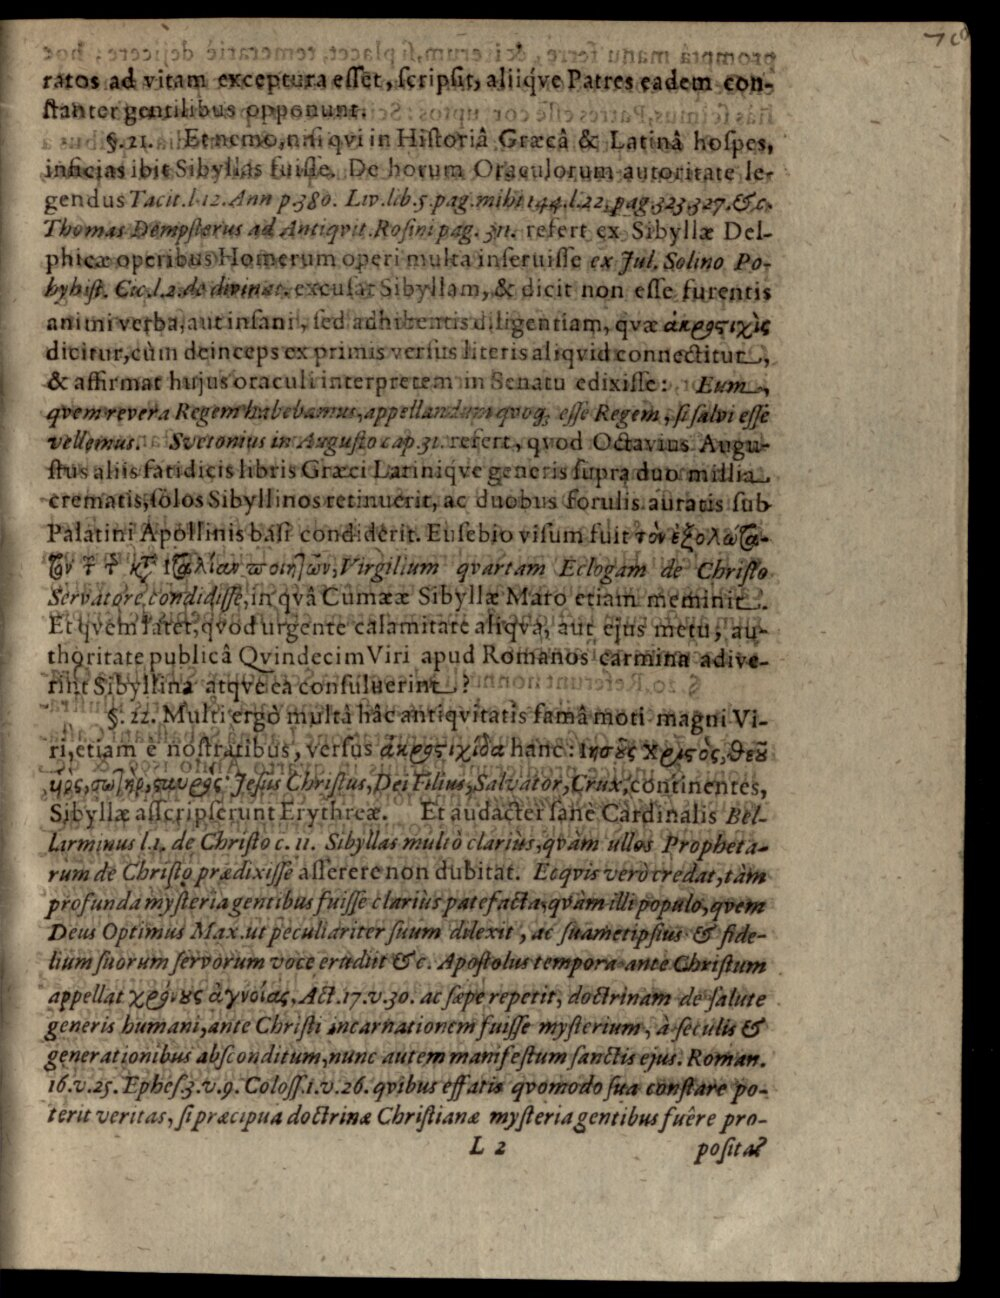 ratos ad vitam exceptura esset, scripsit, aliiqve Patres eadem con-
stanter gentilibus opponunt.
§. 21. Et nemo, nisi qvi in Historiâ Græcâ & Latinâ hospes,
inficias ibit Sibyllas fuisse. De horum Oraculorum autoritate le-
gendus Tacit. l. 12. Ann p. 380. Liv. lib. 5. pag. mihi 144. l. 22. pag. 323. 327. &c.
Thomas Dempsterus ad Antiqvit. Rosini pag. 311. refert ex Sibyllæ Del-
phicæ operibus Homerum operi multa inseruisse ex Jul. Solino Po-
lyhist. Cic. l. 2. de divinat. excusat Sibyllam, & dicit non esse furentis
animi verba, aut insani, sed adhibentis diligentiam, qvæ ἀκροςιχὶς
dicitur, cùm deinceps ex primis versus literis aliqvid connectitur,
& affirmat hujus oraculi interpretem in Senatu edixisse: Eum,
qvem revera Regem habebamus, appellandum quoq; esse Regem, si salvi esse
vellemus. Svetonius in Augusto cap. 31. refert, qvod Octavius Augu-
stus aliis fatidicis libris Græci Latiniqve generis supra duo millia
crematis, solos Sibyllinos retinuerit, ac duobus forulis auratis sub
Palatini Apollinis basi condiderit. Eusebio visum fuit τὸν ἐξολώτα-
τον τ τ κτ ἰταλίαν ποιητῶν, Virgilium qvartam Eclogam de Christo
Servatore condidisse, in qvâ Cumææ Sibyllæ Maro etiam meminit.
Et qvem latet, qvod urgente calamitate aliqvâ, aut ejus metu, au-
thoritate publicâ Qvindecim Viri apud Romanos carmina adive-
rint Sibyllina atqve ea consuluerint?
§. 22. Multi ergò multâ hâc antiqvitatis famâ moti magni Vi-
ri, etiam è nostratibus, versus ἀκροςιχίδα hanc: ιησοῦς Χριςὸς, θεοῦ
ὑιὸς, σωτὴρ, ςαυρὸς: Jesus Christus, Dei Filius, Salvator, Crux, continentes,
Sibyllæ asscripserunt Erythreæ. Et audacter sanè Cardinalis Bel-
larminus l. 1. de Christo c. 11. Sibyllas multò clariùs, qvàm ullos Propheta-
rum de Christo prædixisse asserere non dubitat. Ecqvis verò credat, tàm
profunda mysteria gentibus fuisse clariùs patefacta, qvàm illi populo, qvem
Deus Optimus Max. ut peculiariter suum dilexit, ac suametipsius & fide-
lium suorum servorum voce erudiit &c. Apostolus tempora ante Christum
appellat χρόνους ἀγνοίας, Act. 17. v. 30. ac sæpe repetit, doctrinam de salute
generis humani, ante Christi incarnationem fuisse mysterium, à seculis &
generationibus absconditum, nunc autem manifestum sanctis ejus. Roman.
16. v. 25. Ephes. 3. v. 9. Coloss. 1. v. 26. qvibus effatis qvomodo sua constare po-
terit veritas, si præcipua doctrinæ Christianæ mysteria gentibus fuêre pro-
L 2 posita?